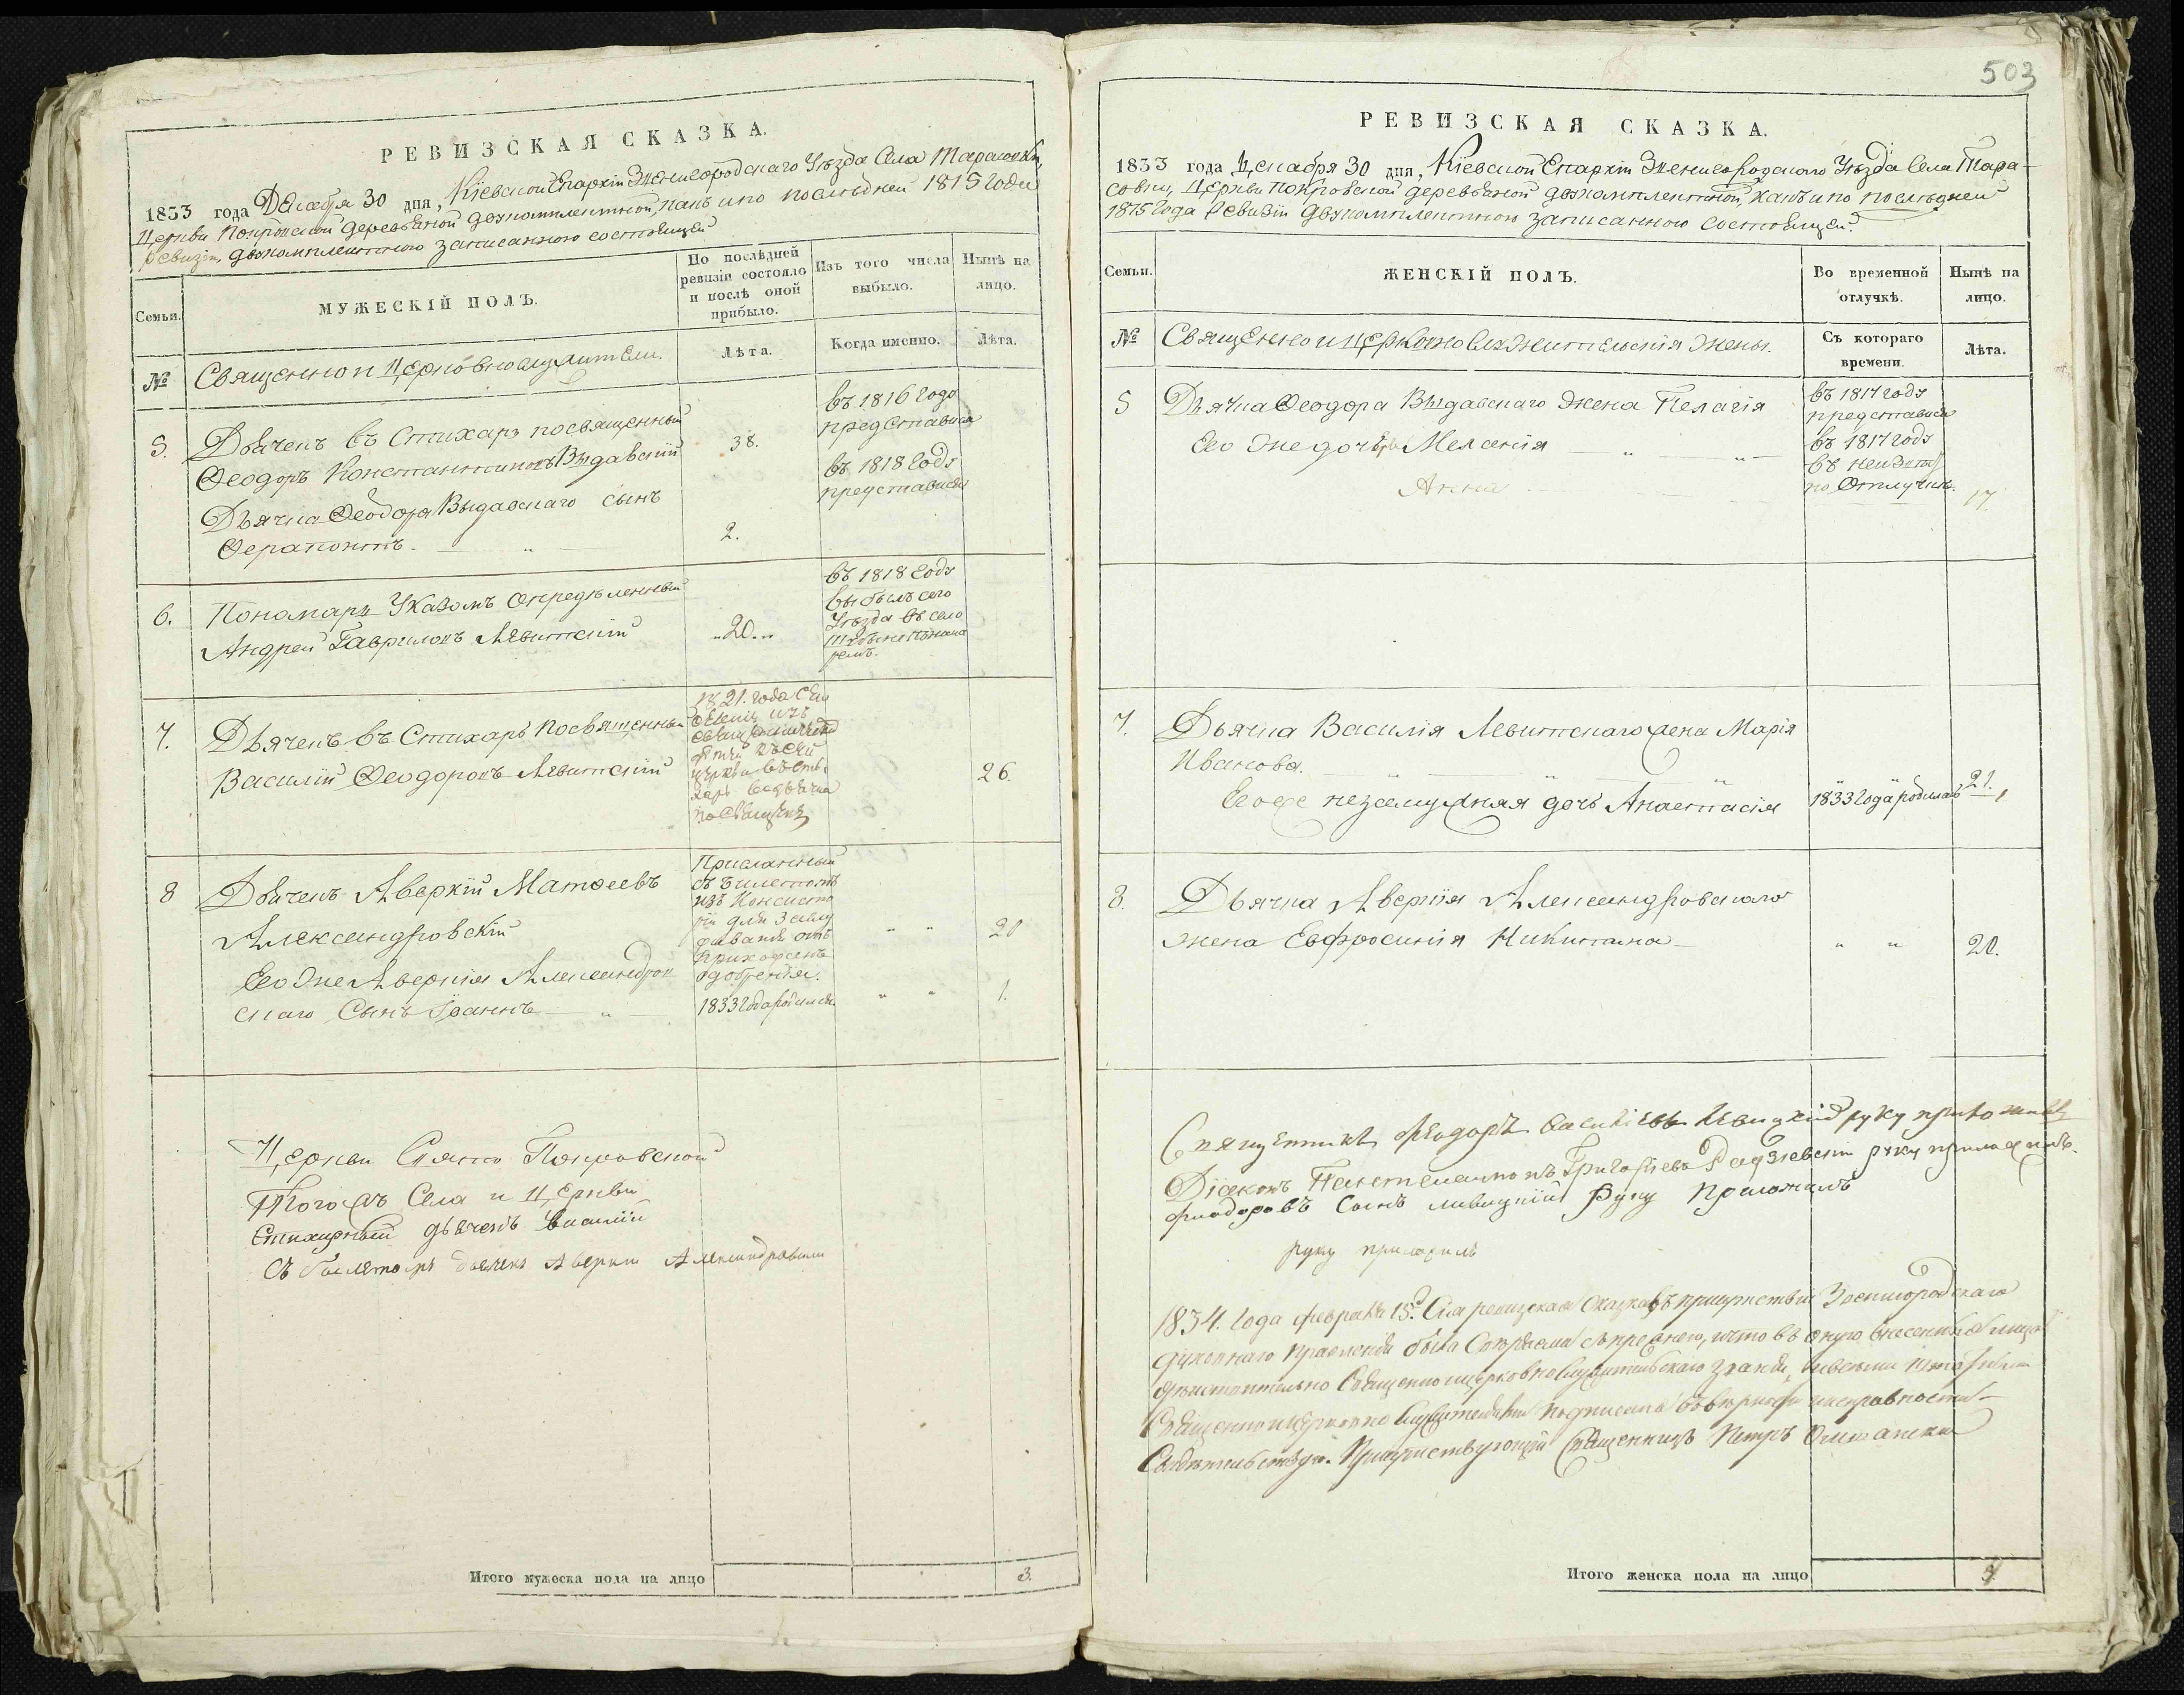 РЕВИЗСКАЯ СКАЗКА.
1833 года Декабря 30 дня, Кіевской Епархіи Звенигородскаго Уѣзда Села Тарасовки,
Церкви Покровской деревѣяной двокомплектной, какъ и по послѣдней 1815 года
ревизіи, двокомплектною записанною состоящей
Семьи.
МУЖЕСКІЙ ПОЛЪ.
По послѣдней ревизіи состояло и послѣ оной прибыло.
Изъ того числа выбыло.
Нынѣ на лицо.
№
Священно и Церковнослужители.
Лѣта.
Когда именно.
Лѣта.
5. Дьячекъ въ Стихарь посвященный
Ѳеодоръ Константиновъ Выдавскій
38.
въ 1816 году
представися
Дьячка Ѳеодора Выдавскаго сынъ
Ѳерапонтъ.
2.
въ 1818 году
представися
6. Пономарь Указомъ Опредѣленный
Андрей Гавриловъ Левитскій
20.
въ 1818 году
выбылъ сего
Уѣзда въ село
ремъ.
7. Дьячекъ въ Стихарь посвященный
Василій Ѳеодоровъ Левитскій
1821. года
изъ
дѣтей къ сей
церкви въ сти-
харь во дьячка
посвященъ
26.
8 Дьячекъ Аверкій Матѳеевъ
Александровскій
Присланный
съ билетомъ
изъ Консисто
ріи для заслу
живанія отъ
прихожанъ
одобренія.
20
Его же Аверкія Александров
скаго Сынъ Іоаннъ
1833 года родился
1.
Церкви Свято Покровской
Тогожъ Села и Церкви
Стихарный дьячекъ Василій
Съ билетомъ дьячекъ Аверкій Александровскій
Итого мужеска пола на лицо
3.
503
РЕВИЗСКАЯ СКАЗКА.
1833 года Декабря 30 дня, Кіевской Епархіи Звенигородскаго Уѣзда Села Тара-
совки, Церкви Покровской деревѣяной двокомплектной, какъ и по послѣдней
1815 года Ревизіи двокомплектною записанною состоящей.
Семьи.
ЖЕНСКІЙ ПОЛЪ.
Во временной отлучкѣ.
Нынѣ на лицо.
№
Священно и Церковнослужительскія жены.
Съ котораго времени.
Лѣта.
5 Дьячка Ѳеодора Выдавскаго жена Пелагія
въ 1817 году
представися
Его же дочери Меланія
въ 1817 году
въ неизвѣст
но отлучкѣ.
Анна
17.
7. Дьячка Василія Левитскаго жена Марія
Иванова.
21.
Егоже незамужняя дочь Анастасія
1833 года родилась
1
8. Дьячка Аверкія Александровскаго
жена Евфросинія Никитина
20.
Священникъ Ѳеодоръ Василіевъ Левицкій руку приложилъ
Діаконъ Пантелеимонъ Григоріевъ Радзіевскій руку приложилъ.
Фиодоровъ Сынъ Ливицкій Руку Приложилъ
руку приложилъ
1834. года февраля 15. Сія ревизская Сказка въ присутствіи Звенигородскаго
Духовнаго Правленія была Свѣряема съ прежнею, и что въ оную внесенны лица
дѣйствительно Священно и церковнослужительскаго званія, и всѣми
Священно и Церковно Служителями подписана въ вѣрности и исправности
Свидѣтельствую. Присутствующій Священникъ Петръ
Итого женска пола на лицо